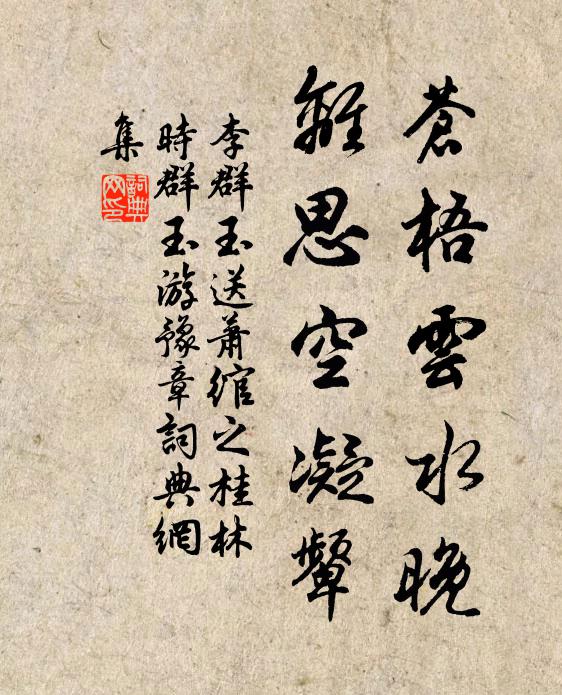 蒼梧雲水晚
離思空凝顰
李群玉送蕭綰之桂林
時群玉游豫章詞典網
集
詞典网印